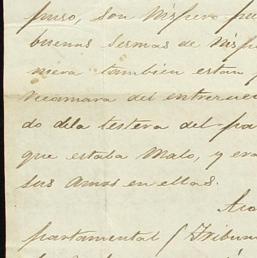 puso, son Nispero pu
buenas sesmas de Nisp
nieva tambien estan
recámara del entrecue
do dela testera del pa
que estaba Malo, y era
sus Amos en ellas.
Aco
partamental / Tribun